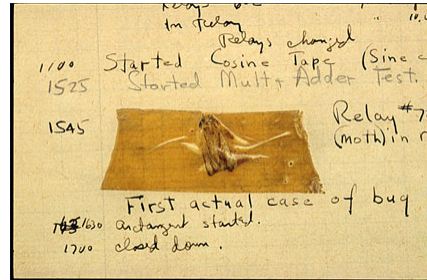 Relays
In Relay
Relays changed
1100 Started Cosine Tape (Sine c
1525 Started Mult + Adder Test.
1545 Relay #7
(moth) in r
First actual case of bug
1630 arctangent started.
1700 closed down.